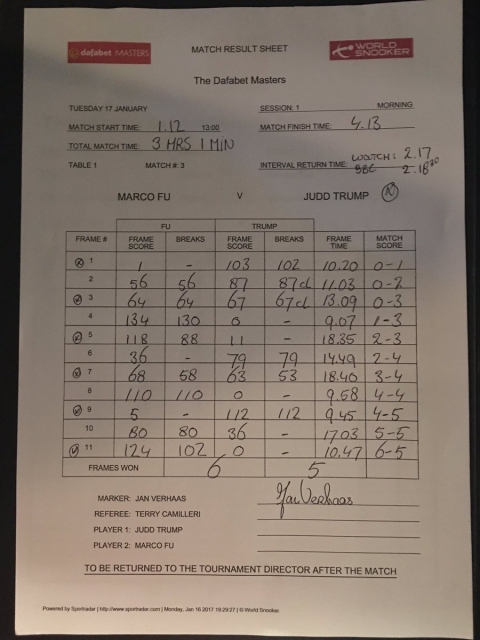 dafabet MASTERS
MATCH RESULT SHEET
WORLD SNOOKER
The Dafabet Masters
TUESDAY 17 JANUARY SESSION: 1 MORNING
MATCH START TIME: 1.12 13:00 MATCH FINISH TIME: 4.13
TOTAL MATCH TIME: 3 HRS 1 MIN
TABLE 1 MATCH #: 3 INTERVAL RETURN TIME: WATCH: 2.17
BBC 2.18
MARCO FU V JUDD TRUMP
FU TRUMP
FRAME # FRAME SCORE BREAKS FRAME SCORE BREAKS FRAME TIME MATCH SCORE
1 1 - 103 102 10.20 0-1
2 56 56 87 87cl 11.03 0-2
3 64 64 67 67cl 13.09 0-3
4 134 130 0 - 9.07 1-3
5 118 88 11 - 18.35 2-3
6 36 - 79 79 14.49 2-4
7 68 58 63 53 18.40 3-4
8 110 110 0 - 9.58 4-4
9 5 - 112 112 9.45 4-5
10 80 80 36 - 17.03 5-5
11 124 102 0 - 10.47 6-5
FRAMES WON 6 5
MARKER: JAN VERHAAS Jan Verhaas
REFEREE: TERRY CAMILLERI
PLAYER 1: JUDD TRUMP
PLAYER 2: MARCO FU
TO BE RETURNED TO THE TOURNAMENT DIRECTOR AFTER THE MATCH
Powered by Sportradar | http://www.sportradar.com | Monday, Jan 16 2017 19:29:27 | © World Snooker.